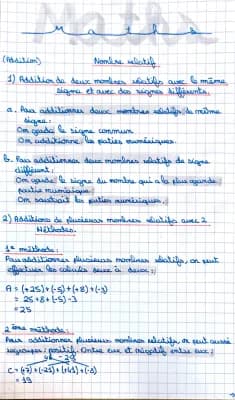 Maths
(Addition) Nombre relatif
1) Addition de deux nombres relatifs avec le même
signe et avec des signes différents.
a. Pour additionner deux nombres relatifs de même
signe:
On garde le signe commun
On additionne les parties numériques.
b. Pour additionner deux nombres relatifs de signe
différent:
On garde le signe du nombre qui a la plus grande
partie numérique
On soustrait les parties numériques.
2) Additions de plusieurs nombres relatifs avec 2
Méthodes.
1ère méthode:
Pour additionner plusieurs nombres relatifs, on peut
effectuer les calculs deux à deux:
A = (+25)+(-5)+(+8)+(-3)
= 25+8+(-5)-3
= 25
2ème méthode:
Pour additionner plusieurs nombres relatifs, on peut aussi
regrouper; positif. Entre eux et négatif entre eux;
C = (+7)+(-21)+(+41)+(-8)
= 19